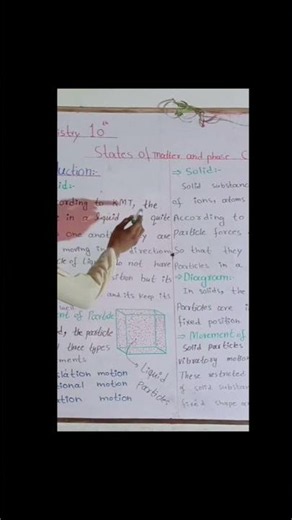 istry 10
States of matter and phase C
uction:-
id:-
ording to KMT, the
in a liquid quite
one anot are
moving in direction
le of Liq not have
sition but its
and its keep its
nt of Particle
the particle
three types
ments
slation motion
ional motion
ation motion
Liquid
Particles
⇒ Solid:-
Solid substanc
of ions, atoms
According to
Particle forces
So that they
Particles in a
⇒ Diagram:-
In solids, the
Particles are i
fixed position
⇒ Movement of
Solid Particles
vibratory motion
These
of solid substan
shape